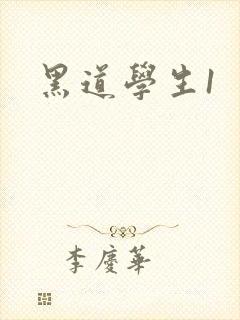 黑道學生1
李慶華